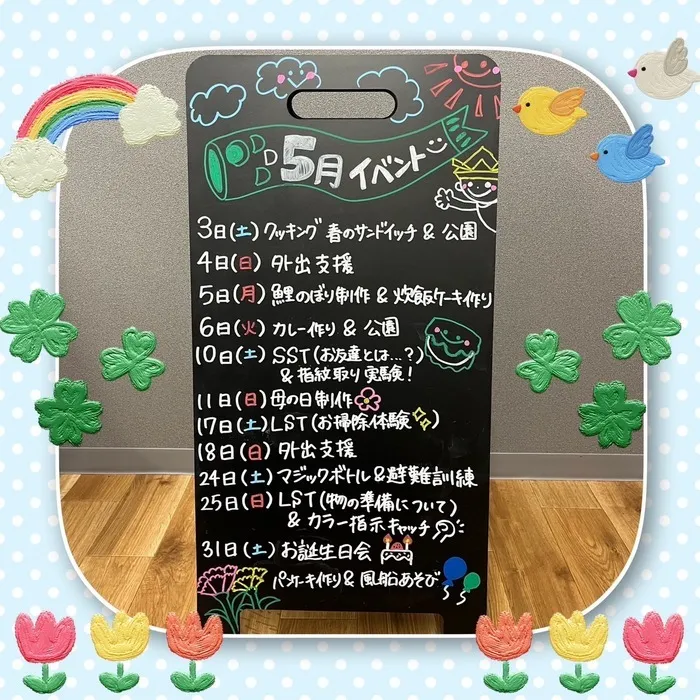 5月イベント
3日(土) クッキング 春のサンドイッチ & 公園
4日(日) 外出支援
5日(月) 鯉のぼり制作 & 炊飯ケーキ作り
6日(火) カレー作り & 公園
10日(土) SST(お友達とは…?)
& 指紋取り実験!
11日(日) 母の日制作
17日(土) LST(お掃除体験)
18日(日) 外出支援
24日(土) マジックボトル & 避難訓練
25日(日) LST(物の準備について)
& カラー指示キャッチ
31日(土) お誕生日会
パンケーキ作り & 風船あそび